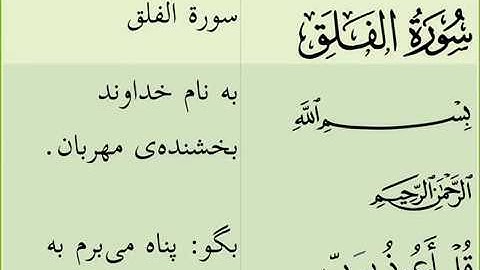 سُورَةُ الفَلَقِ
سورة الفلق
بِسْمِ اللَّهِ
الرَّحْمَٰنِ الرَّحِيمِ
به نام خداوند
بخشنده‌ی مهربان.
قُلْ أَعُوذُ بِرَبِّ
بگو: پناه می‌برم به